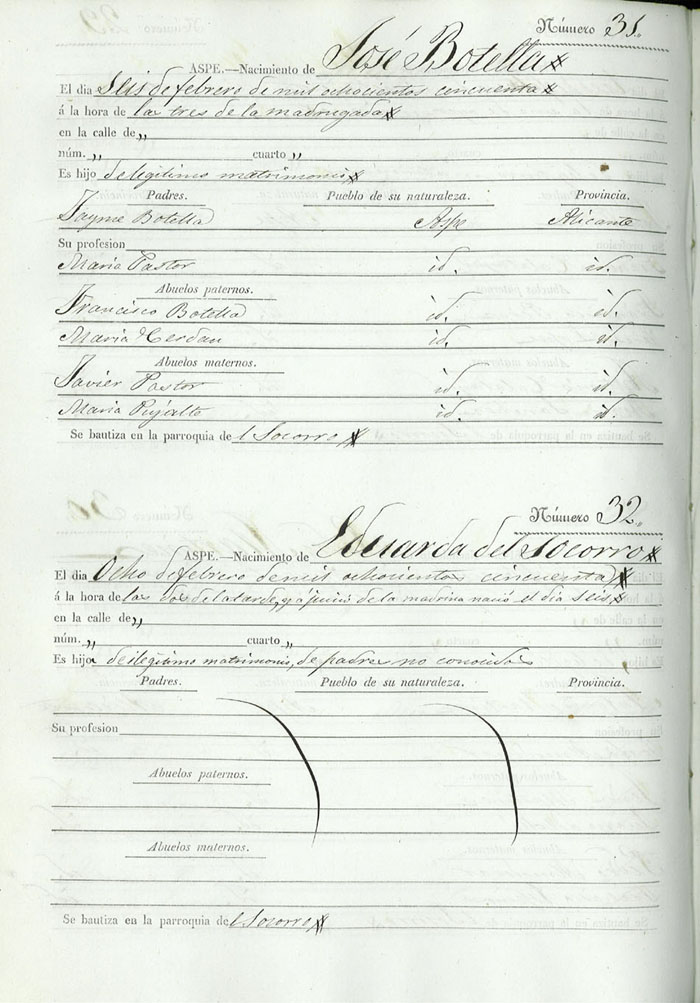 Número 31.
ASPE.—Nacimiento de José Botella
El dia Seis de febrero de mil ochocientos cincuenta
á la hora de las tres de la madrugada
en la calle de „
núm. „ cuarto „
Es hijo de legitimo matrimonio
Padres. Pueblo de su naturaleza. Provincia.
Jayme Botella Aspe Alicante
Su profesion
Maria Pastor id. id.
Abuelos paternos.
Francisco Botella id. id.
Maria Cerdan id. id.
Abuelos maternos.
Javier Pastor id. id.
Maria Pujalte id. id.
Se bautiza en la parroquia de l Socorro
Número 32.
ASPE.—Nacimiento de Eduarda del Socorro
El dia Ocho de febrero de mil ochocientos cincuenta
á la hora de las dos de la tarde, y á juicio de la madrina nació el dia seis
en la calle de „
núm. „ cuarto „
Es hija de ilegitimo matrimonio, de padres no conocidos
Padres. Pueblo de su naturaleza. Provincia.
Su profesion
Abuelos paternos.
Abuelos maternos.
Se bautiza en la parroquia de l Socorro